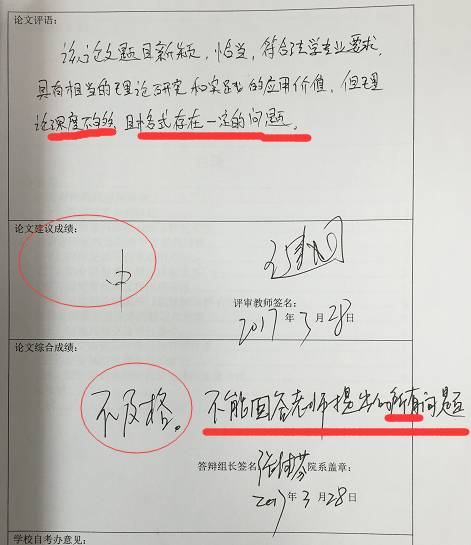 论文评语：
该论文题目新颖，恰当，符合法学专业要求，
具有相当的理论研究和实践的应用价值，但理
论深度不够，且格式存在一定的问题。
论文建议成绩：
中
评审教师签名：
2017年3月28日
论文综合成绩：
不及格。 不能回答老师提出的所有问题
答辩组长签名 院系盖章：
2017年3月28日
学校自考办意见：